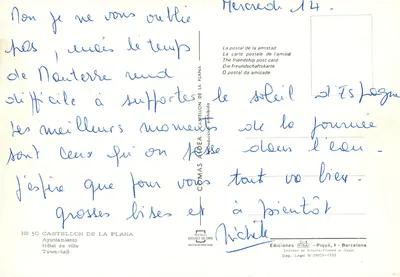 Mercredi 14.
Non je ne vous oublie
pas, mais le temps
de Nanterre rend
difficile à supporter le soleil d'Espagne
Les meilleurs moments de la journée
sont ceux qu'on passe dans l'eau.
J'espère que pour vous tout va bien.
grosses bises et à bientôt
Michèle
La postal de la amistad
La carte postale de l'amitié
The friendship post card
Die Freundschaftskarte
O postal da amizade
COMAS ALDEA
CASTELLON DE LA PLANA
50 CASTELLON DE LA PLANA
Ayuntamiento
Hôtel de Ville
Town-hall
Ediciones
Piqué, - Barcelona